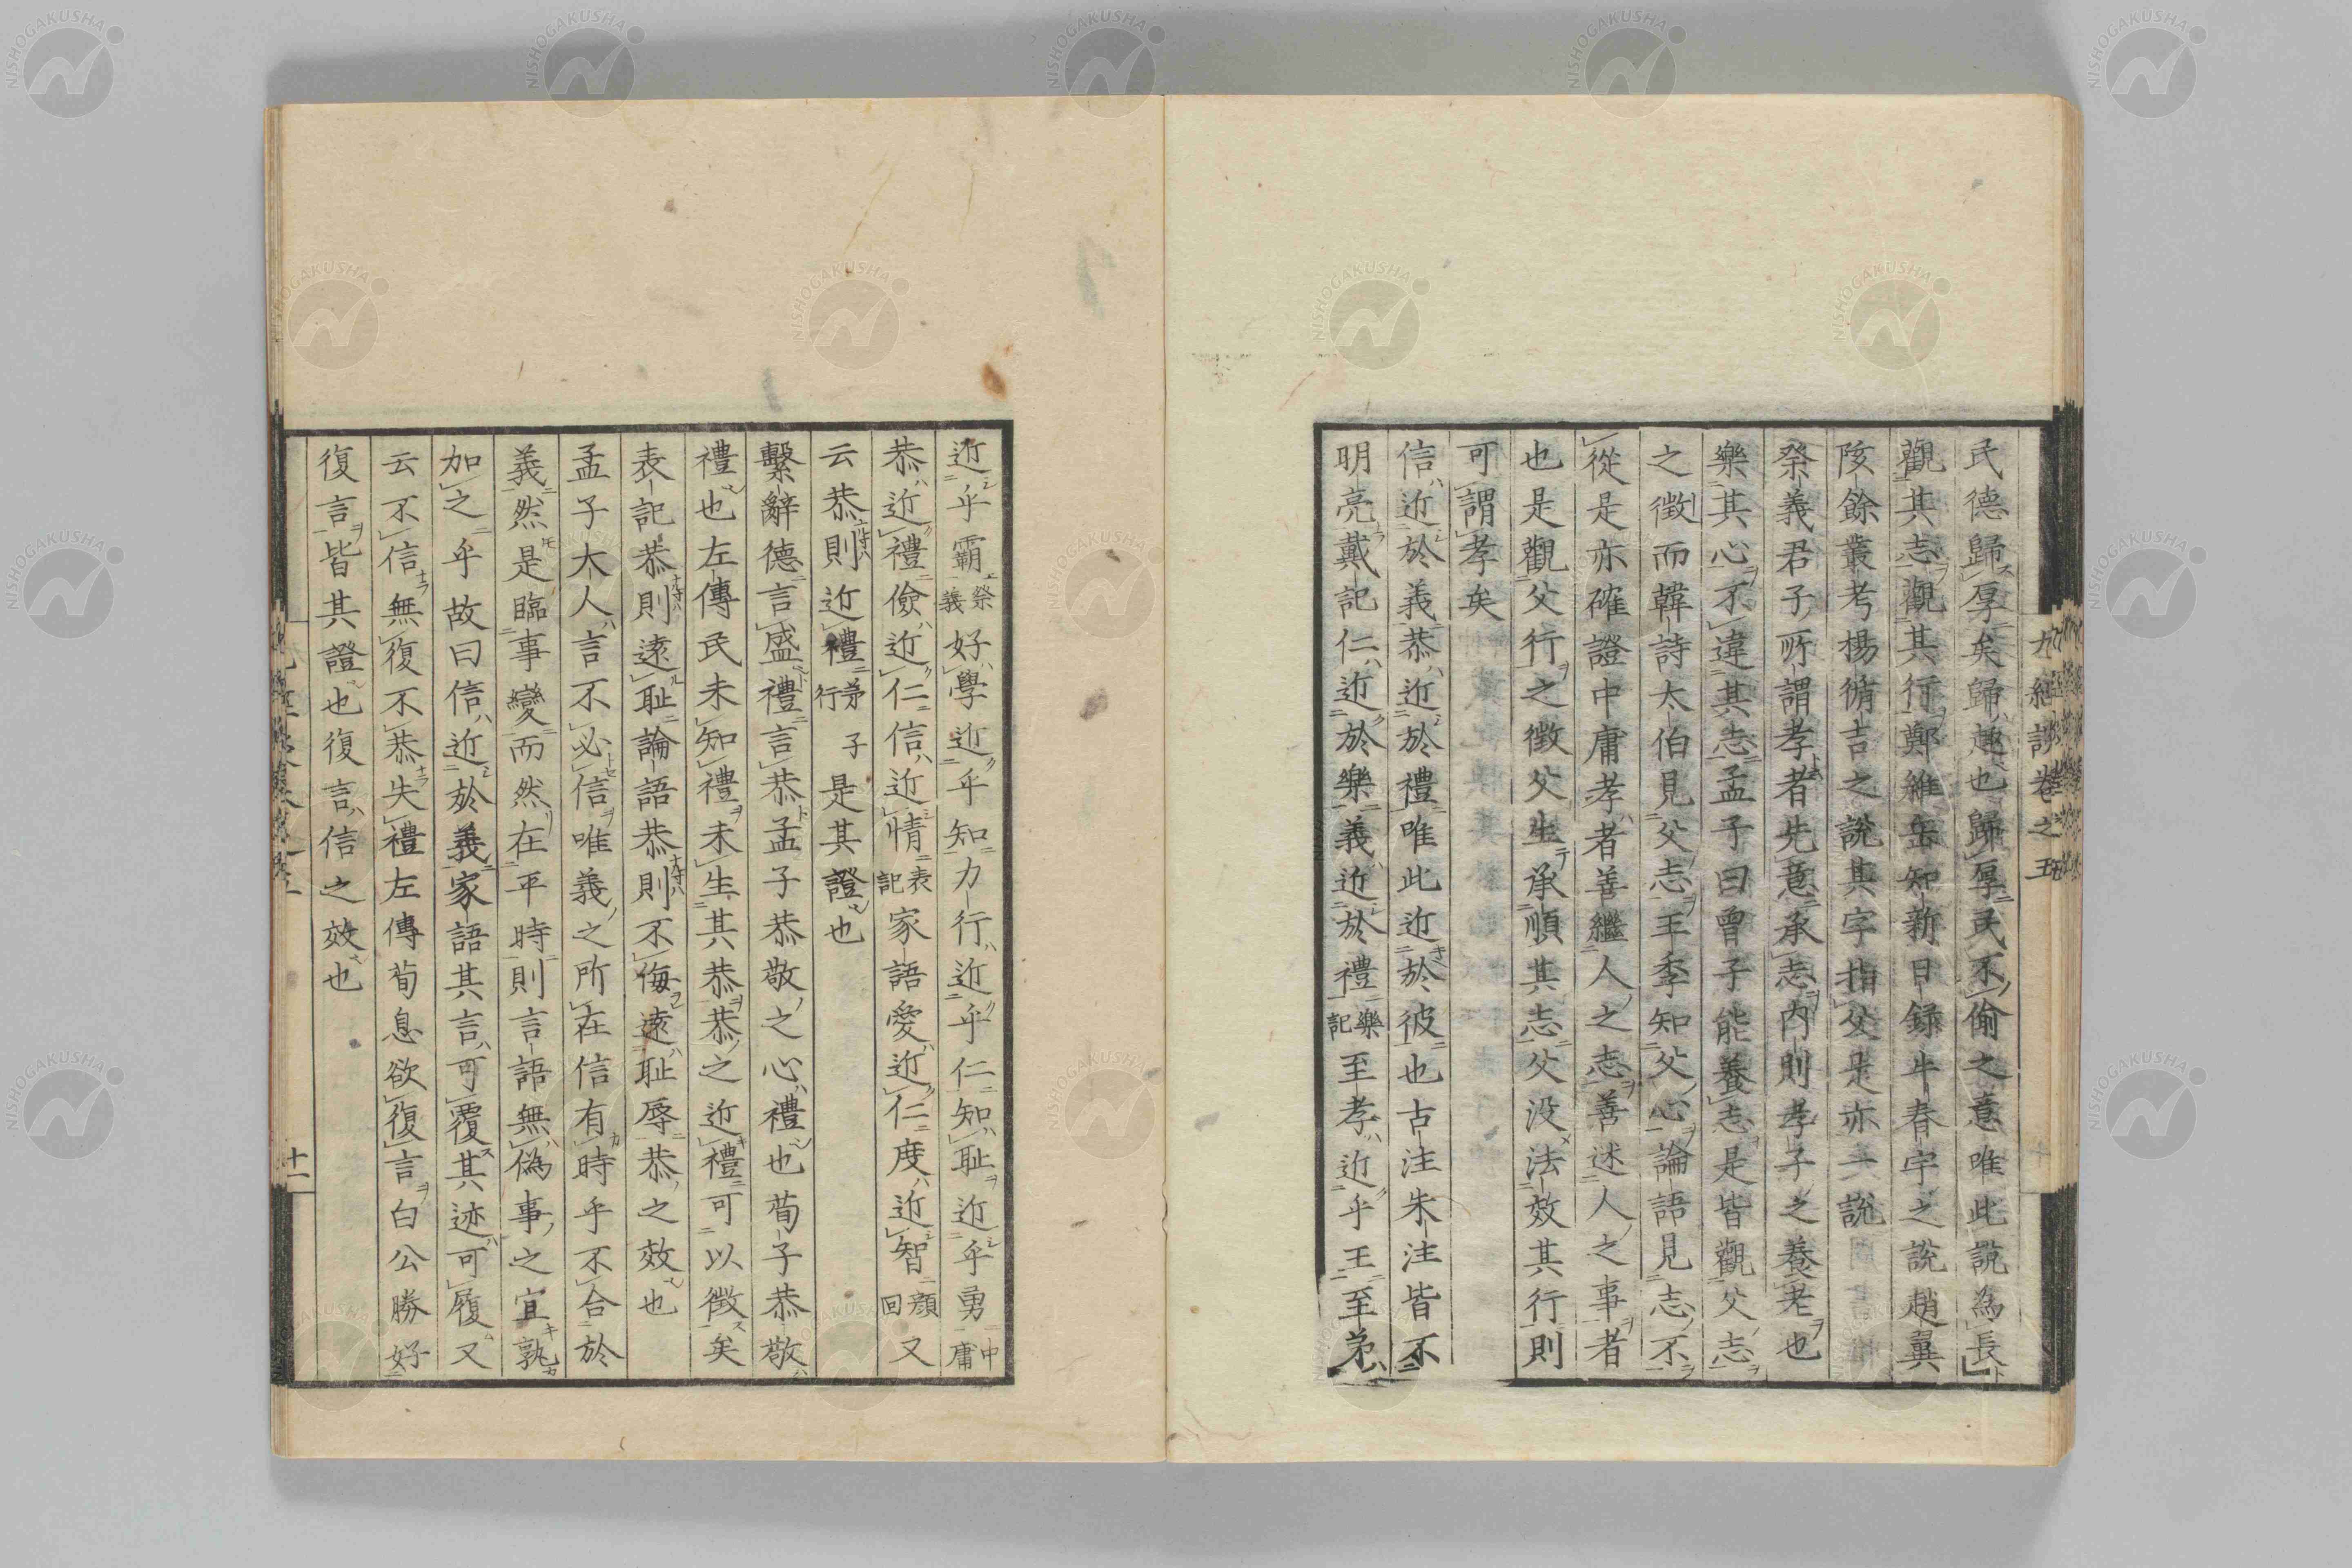 九經談卷之五
民德歸厚矣歸趣也歸厚民不偷之意唯此說為長
觀其志觀其行鄭維岳知新日錄牛春宇之說趙翼
陔餘叢考楊循吉之說其字指父是亦一說
祭義君子所謂孝者先意承志內則孝子之養老也
樂其心不違其志孟子曰曾子能養志是皆觀父志
之徵而韓詩太伯見父志王季知父心論語見志不
從是亦確證中庸孝者善繼人之志善述人之事者
也是觀父行之徵父生承順其志父没法效其行則
可謂孝矣
信近於義恭近於禮唯此近於彼也古注朱注皆不
明亮戴記仁近於樂義近於禮樂記至孝近乎王至弟
近乎霸祭義好學近乎知力行近乎仁知恥近乎勇中庸
恭近禮儉近仁信近情表記家語愛近仁度近智顏回又
云恭則近禮弟子行是其證也
繫辭德言盛禮言恭孟子恭敬之心禮也荀子恭敬
禮也左傳民未知禮未生其恭恭之近禮可以徵矣
表記恭則遠恥論語恭則不侮遠恥辱恭之效也
孟子大人言不必信唯義之所在信有時乎不合於
義然是臨事變而然在平時則言語無偽事之宜孰
加之乎故曰信近於義家語其言可覆其迹可履又
云不信無復不恭失禮左傳荀息欲復言白公勝好
復言皆其證也復言信之效也
十一
NISHOGAKUSHA